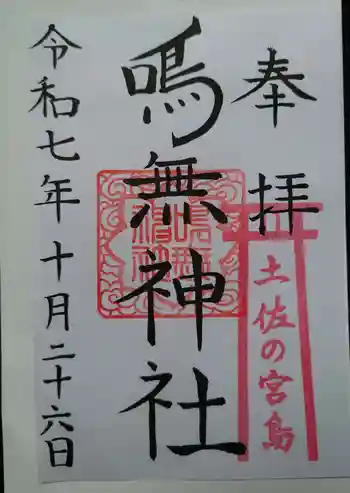 奉拝
土佐の宮島
鳴無神社
令和七年十月二十六日